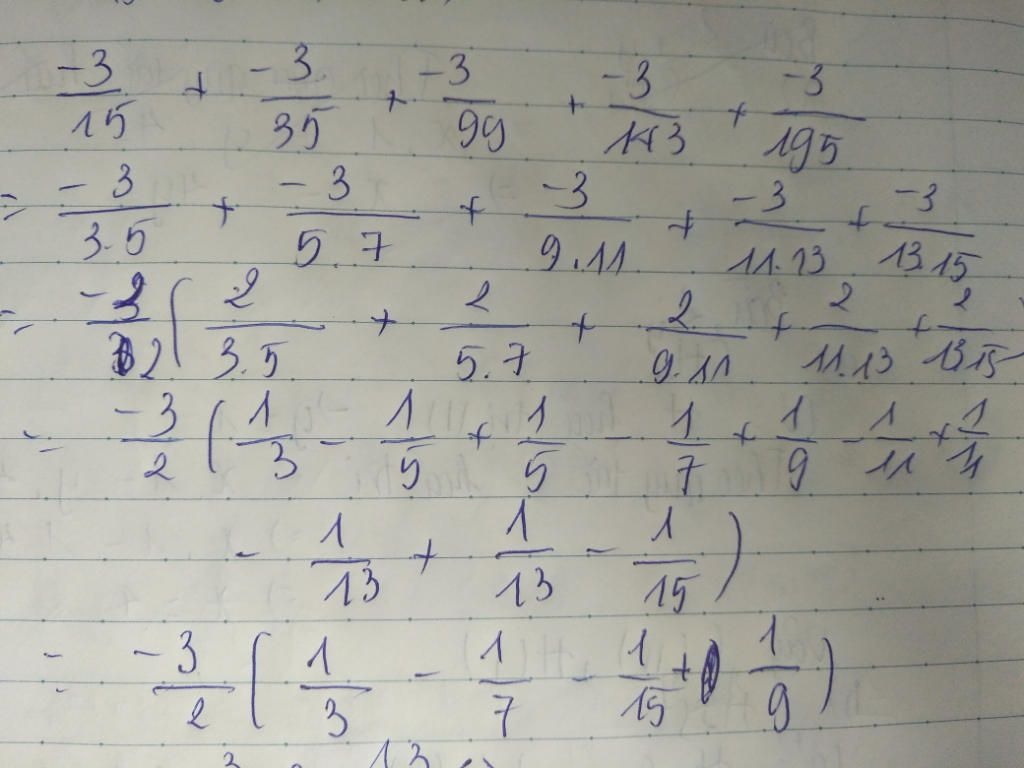 -3/15 + -3/35 + -3/99 + -3/143 + -3/195
= -3/3.5 + -3/5.7 + -3/9.11 + -3/11.13 + -3/13.15
= -3/2 ( 2/3.5 + 2/5.7 + 2/9.11 + 2/11.13 + 2/13.15 )
= -3/2 ( 1/3 - 1/5 + 1/5 - 1/7 + 1/9 - 1/11 + 1/11
- 1/13 + 1/13 - 1/15 )
= -3/2 ( 1/3 - 1/7 - 1/15 + 1/9 )